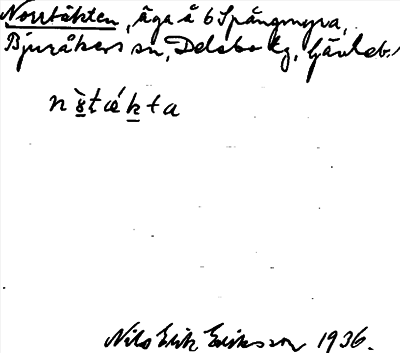 Norrtäkten, äga å 6 Spångmyra,
Bjuråkers sn, Delsbo tg, Gävleb.
n s̀ t ǽ k t a
Nils Erik Eriksson 1936.